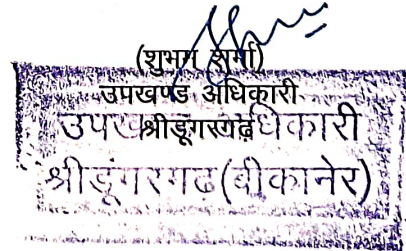 (शुभम शर्मा)
उपखण्ड अधिकारी
श्रीडूंगरगढ़
उपखण्ड अधिकारी
श्रीडूंगरगढ (बीकानेर)